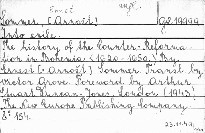 Ernst
Sommer, (Arnošt)
Into exile.
The history of the Counter-Reforma
tion in Bohemia (1620-1650.) By
Ernst (Arnošt) Sommer. Transl. by
Victor Grove. Foreword by Arthur
Stuart Duncan-Jones. London (1943)
The New Europe Publishing Company.
8° 154.